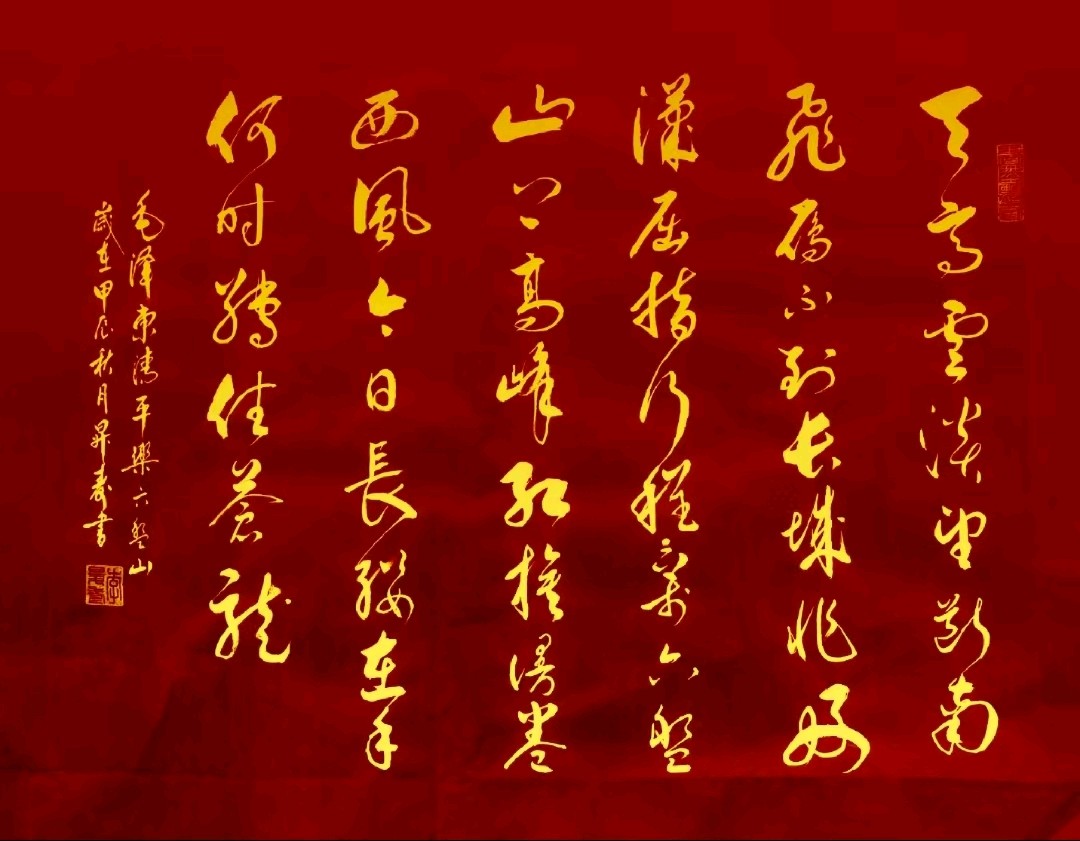 天高雲淡望断南
飛雁不到长城非好
漢屈指行程二萬六盤
山上高峰紅旗漫卷
西風今日長纓在手
何时縛住蒼龍
毛澤東清平樂六盤山
歲在甲辰秋月昇壽書